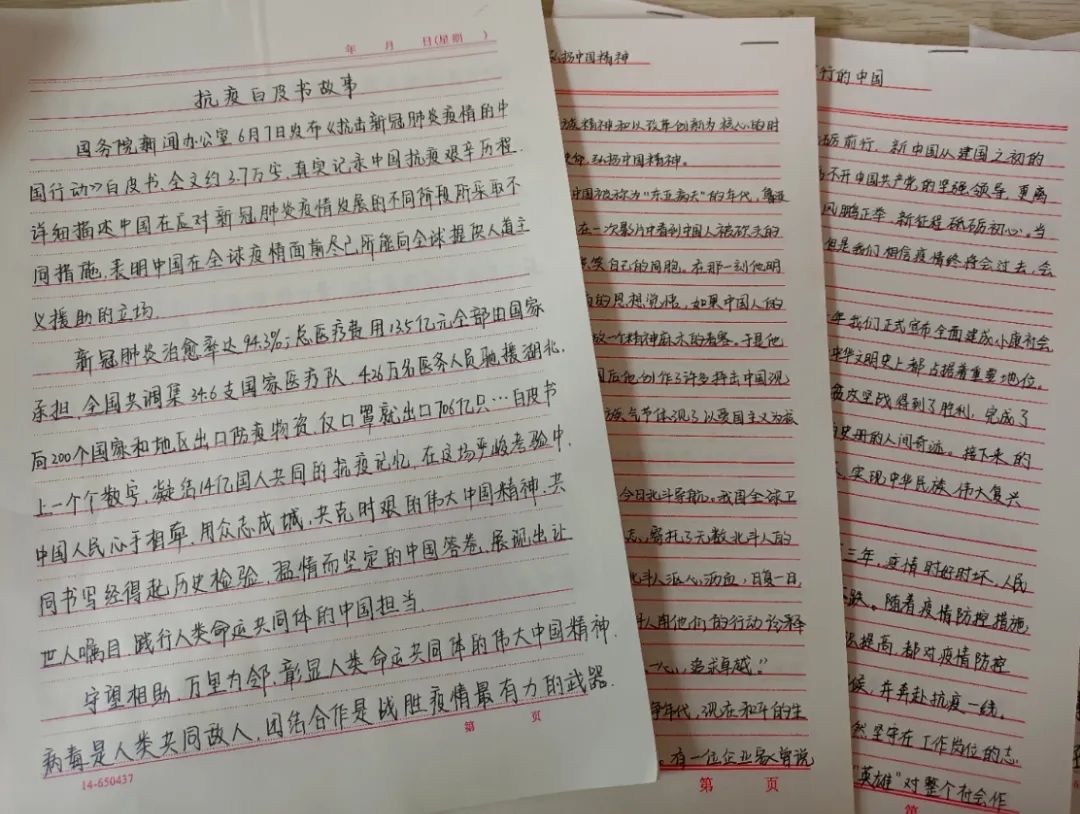 年 月 日(星期 )
抗疫白皮书故事
国务院新闻办公室6月7日发布《抗击新冠肺炎疫情的中
国行动》白皮书,全文约3.7万字,真实记录中国抗疫艰辛历程.
详细描述中国在应对新冠肺炎疫情发展的不同阶段所采取不
同措施,表明中国在全球疫情面前尽己所能向全球提供人道主
义援助的立场.
新冠肺炎治愈率达94.3%;总医疗费用13.5亿元全部由国家
承担.全国共调集346支国家医疗队、4.26万名医务人员驰援湖北,
向200个国家和地区出口防疫物资,仅口罩就出口706亿只…白皮书
上一个个数字,凝结14亿国人共同的抗疫记忆,在这场严峻考验中,
中国人民心手相牵,用众志成城、共克时艰的伟大中国精神,共
同书写经得起历史检验、温情而坚定的中国答卷,展现出让
世人嘱目、践行人类命运共同体的中国担当.
守望相助、万里为邻,彰显人类命运共同体的伟大中国精神.
病毒是人类共同敌人,团结合作是战胜疫情最有力的武器.
第 页
14-650437
弘扬中国精神
族精神和以改革创新为核心的时
弘扬中国精神。
中国被称为“东亚病夫”的年代,鲁迅
在一次影片中看到中国人被砍头的
笑自己的同胞。在那一刻他明
的思想觉悟,如果中国人的
一个精神麻木的看客。于是他
国后他创作了许多抨击中国现
族气节体现了以爱国主义为核
今日北斗导航,我国全球卫
寄托了无数北斗人的
北斗人沥心沥血,日复一日
人用他们的行动诠释
一心、追求卓越。”
争年代,现在和平的生
。有一位企业家曾说
第 页
行的中国
砺前行,新中国从建国之初的
不开中国共产党的坚强领导,更离
风鹏正举,新征程砥砺初心。当
但是我们相信疫情终将会过去,会
年我们正式宣布全面建成小康社会
中华文明史上都占据着重要地位。
贫攻坚战得到了胜利,完成了
史册的人间奇迹。接下来的
,实现中华民族伟大复兴
三年,疫情时好时坏,人民
跌。随着疫情防控措施
提高,都对疫情防控
候,奔赴抗疫一线。
然坚守在工作岗位的志
“英雄”对整个社会作
第